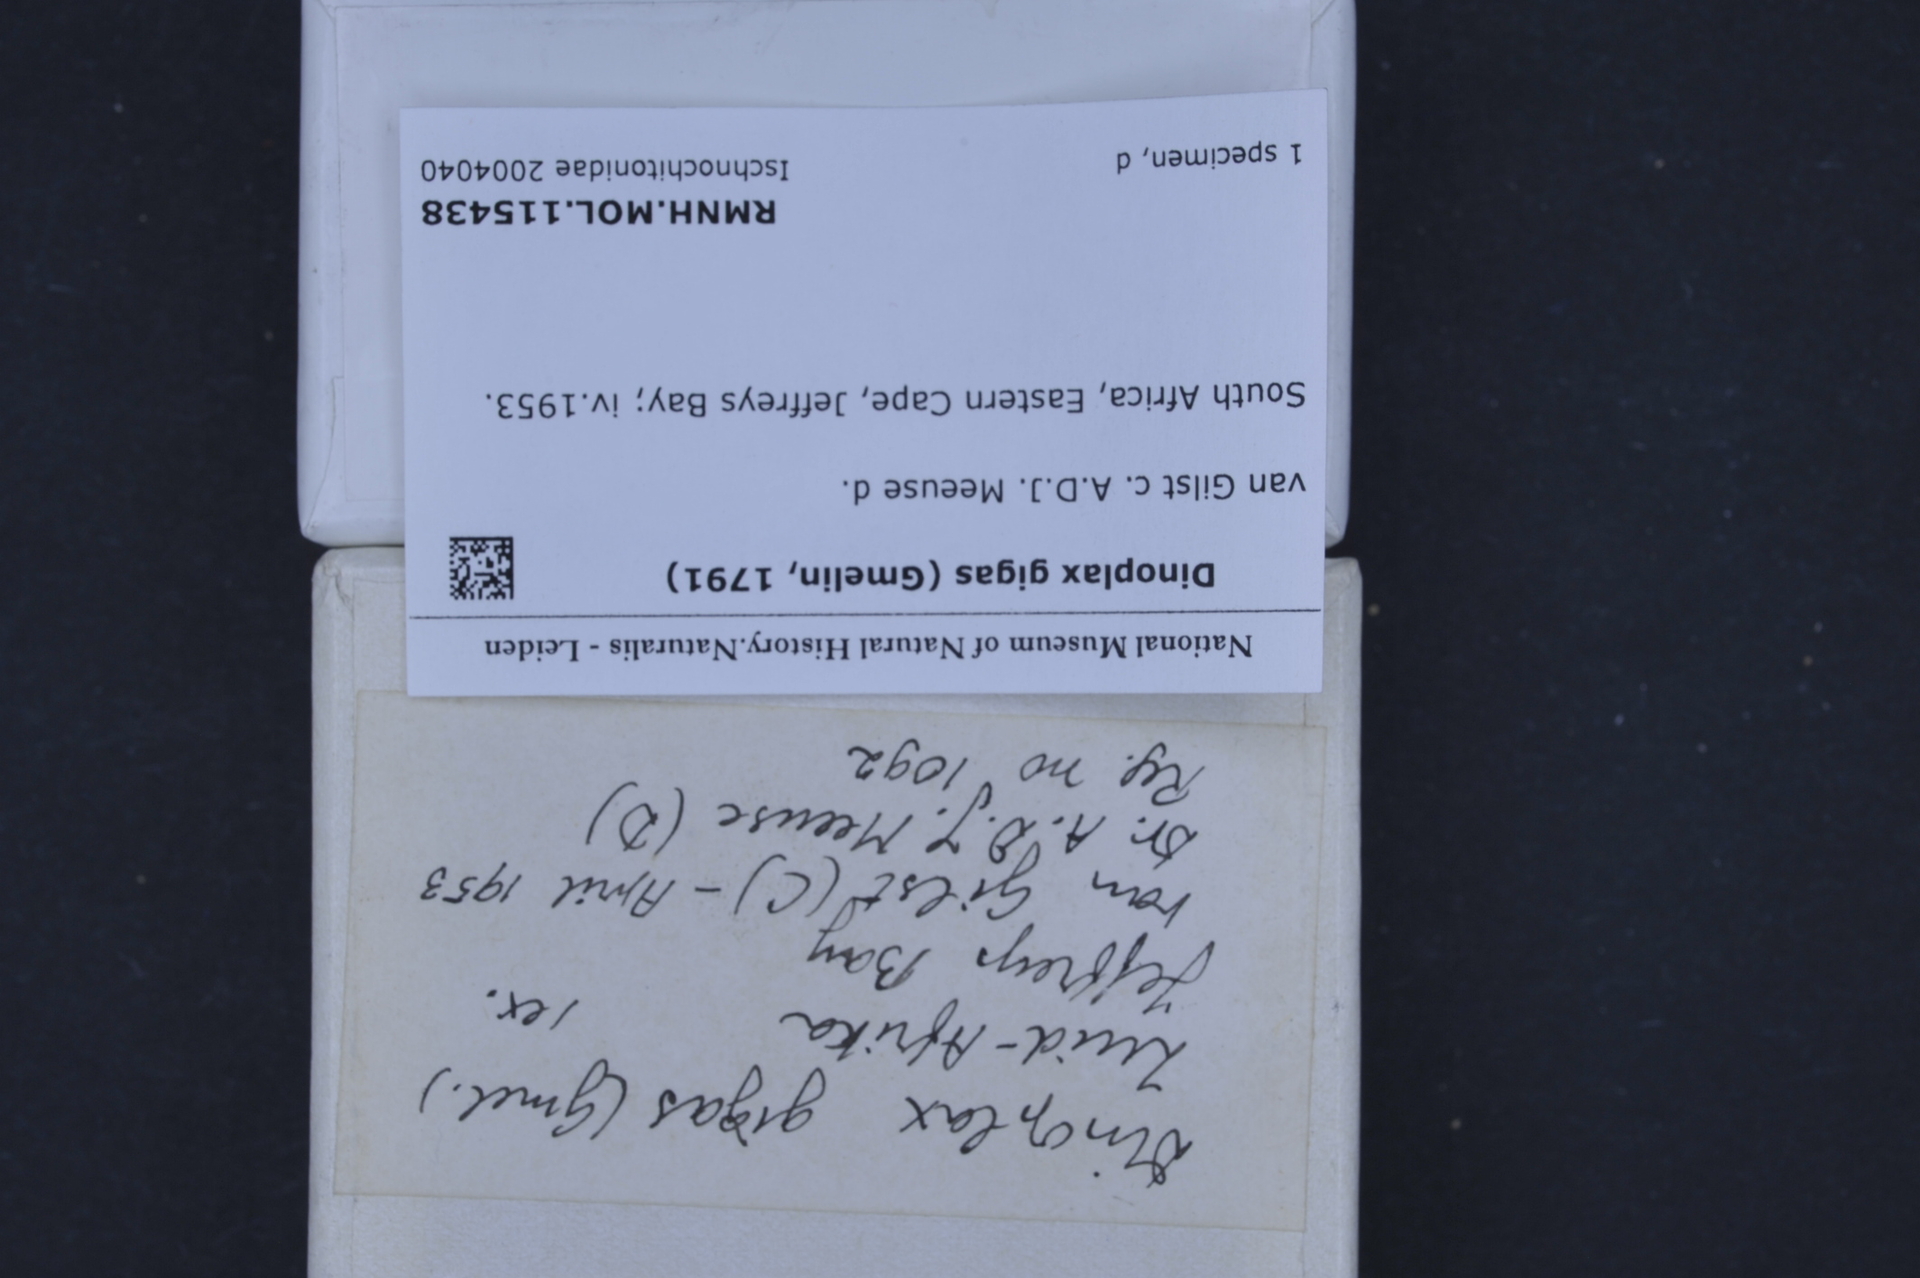 National Museum of Natural History.Naturalis - Leiden
Dinoplax gigas (Gmelin, 1791)
van Gilst c. A.D.J. Meeuse d.
South Africa, Eastern Cape, Jeffreys Bay; iv.1953.
RMNH.MOL.115438
1 specimen, d
Ischnochitonidae 2004040
Dinoplax gigas (Gmel.)
Zuid-Afrika 1 ex.
Jeffreys Bay
van Gilst (C) - April 1953
Dr. A.D.J. Meeuse (D)
Reg. no 1092